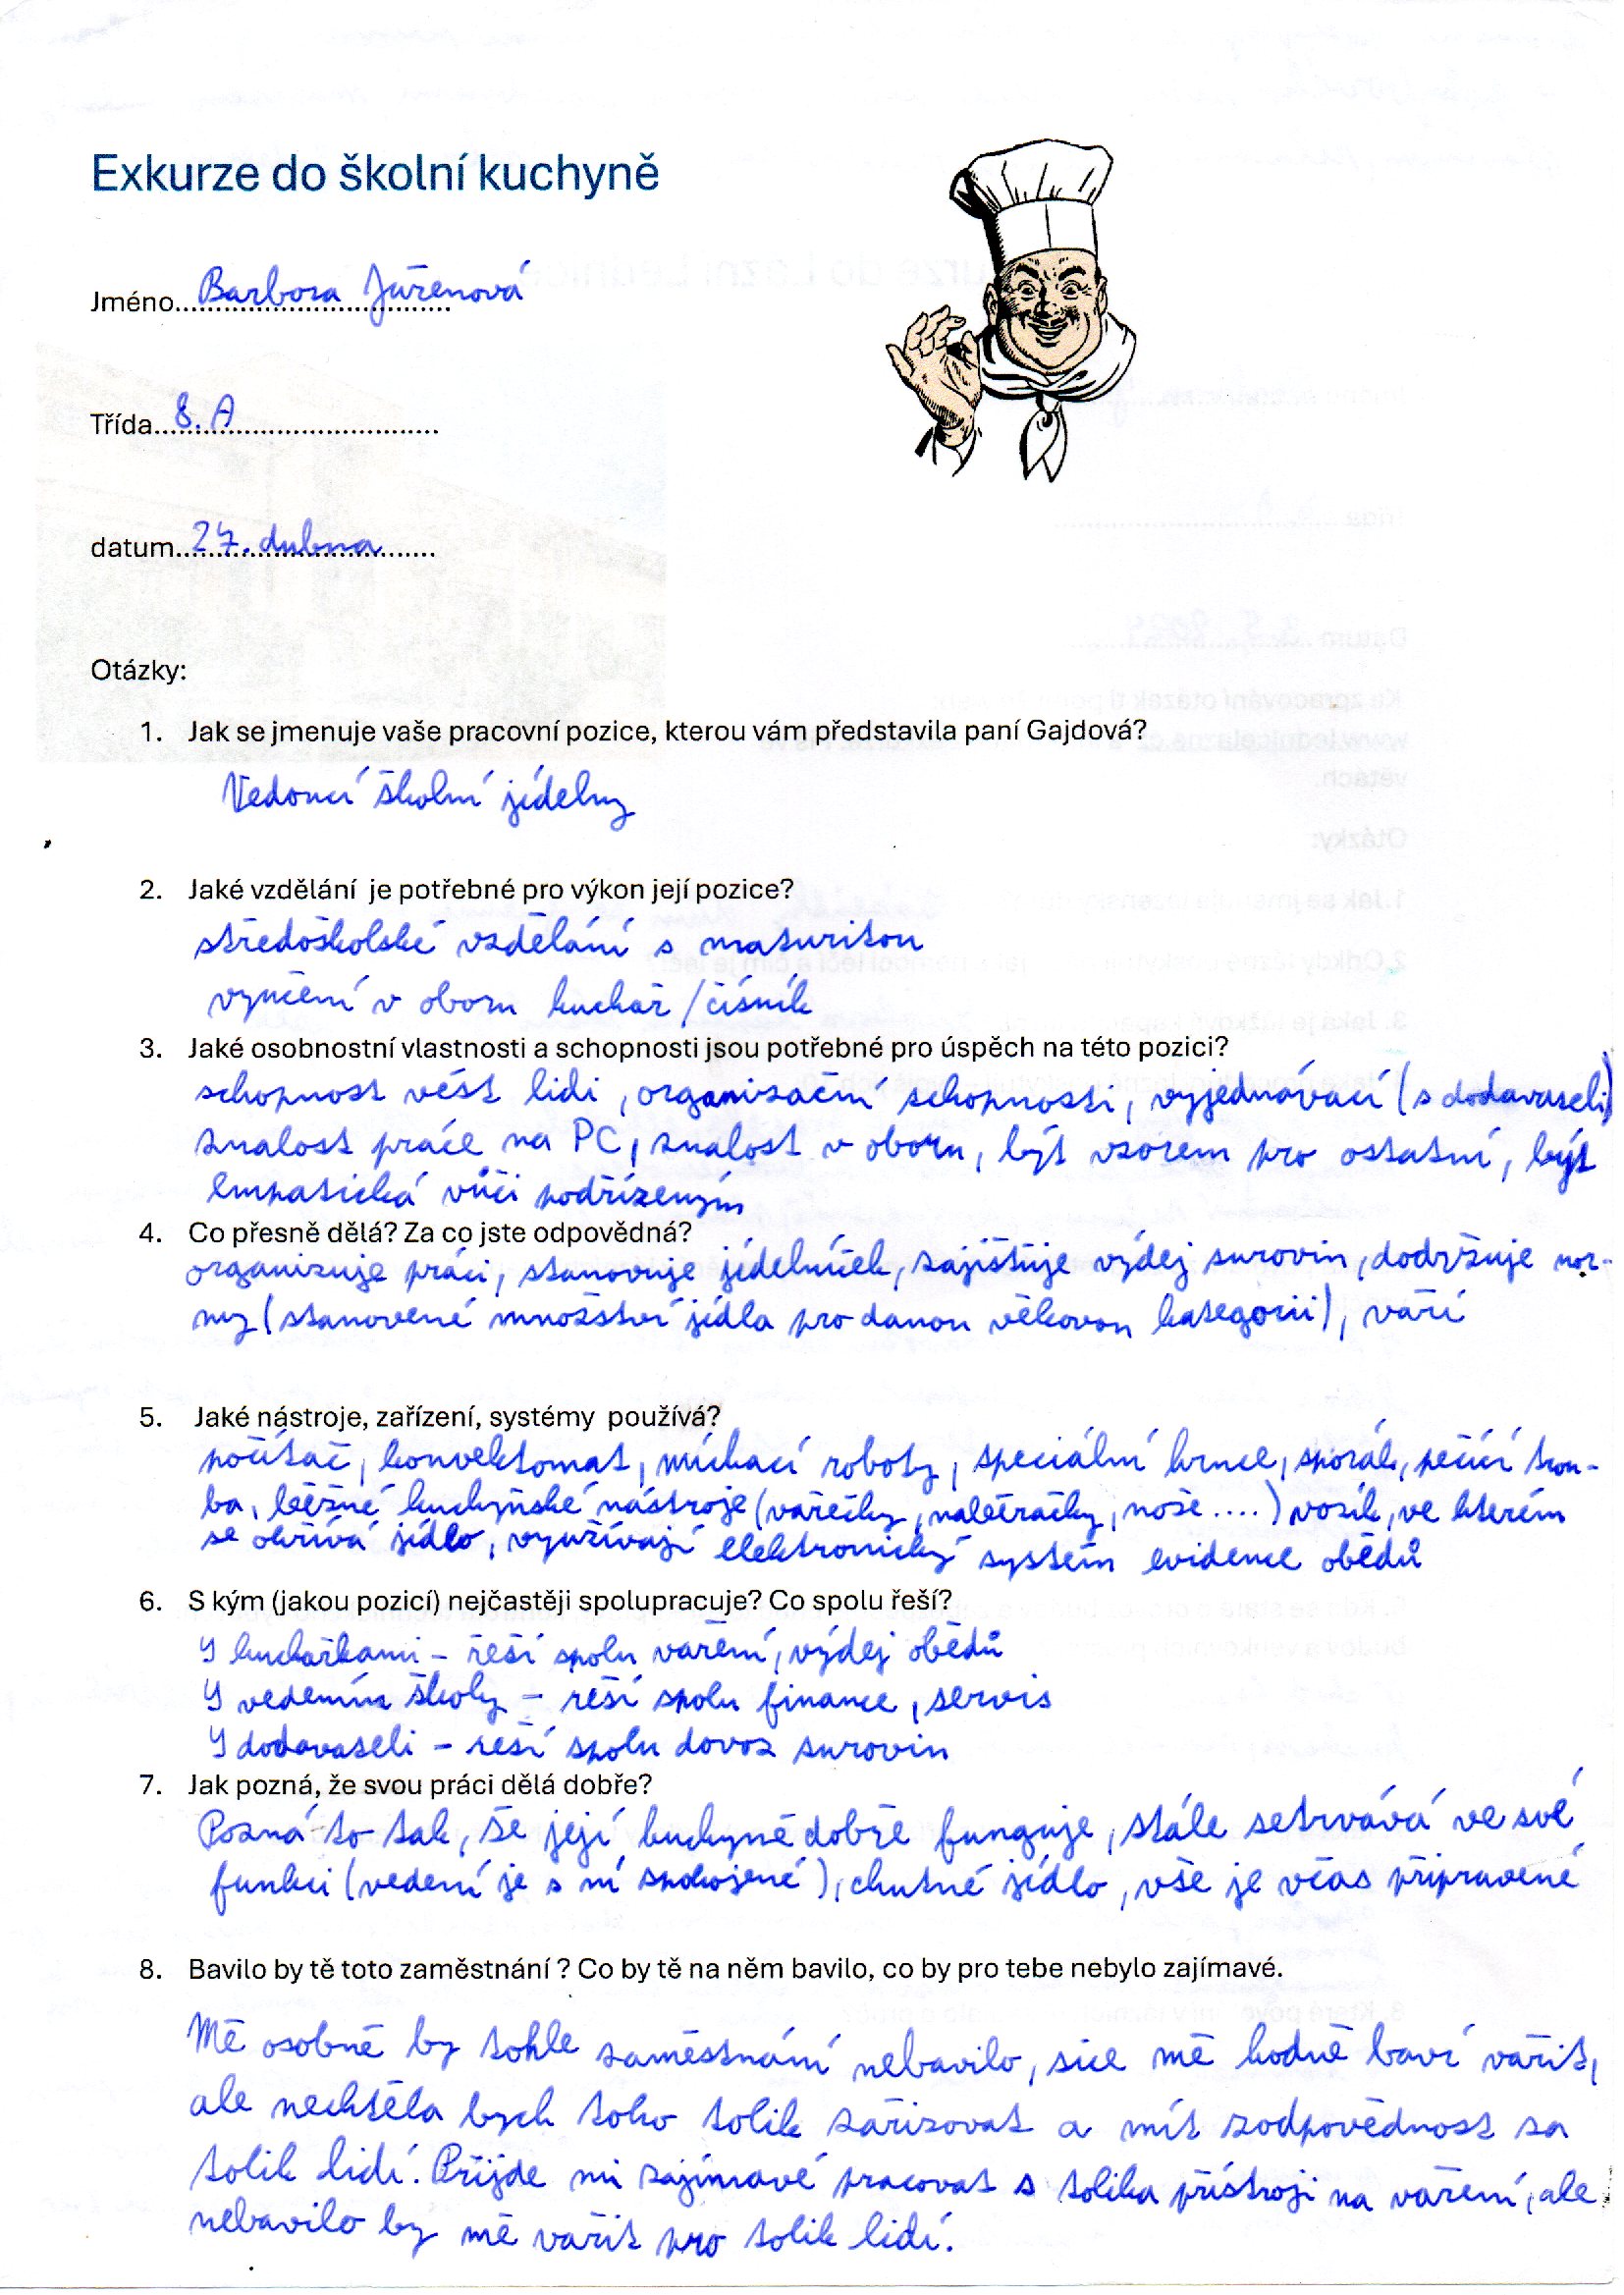 Exkurze do školní kuchyně
Jméno.................................. Barbora Juřenová
Třída................................... 8. A
datum................................ 27. dubna
Otázky:
1. Jak se jmenuje vaše pracovní pozice, kterou vám představila paní Gajdová?
Vedoucí školní jídelny
2. Jaké vzdělání je potřebné pro výkon její pozice?
středoškolské vzdělání s maturitou
vyučení v oboru kuchař/číšník
3. Jaké osobnostní vlastnosti a schopnosti jsou potřebné pro úspěch na této pozici?
schopnost vést lidi, organizační schopnosti, vyjednávací (s dodavateli)
znalost práce na PC, znalost v oboru, být vzorem pro ostatní, být
empatická vůči podřízeným
4. Co přesně dělá? Za co jste odpovědná?
organizuje práci, stanovuje jídelníček, zajišťuje výdej surovin, dodržuje nor-
my (stanovené množství jídla pro danou věkovou kategorii), vaří
5. Jaké nástroje, zařízení, systémy používá?
počítač, konvektomat, míchací roboty, speciální hrnce, sporák, pečící trou-
ba, běžné kuchyňské nástroje (vařečky, naběračky, nože ....) vozík, ve kterém
se ohřívá jídlo, využívají elektronický systém evidence obědů
6. S kým (jakou pozicí) nejčastěji spolupracuje? Co spolu řeší?
S kuchařkami – řeší spolu vaření, výdej obědů
S vedením školy – řeší spolu finance, servis
S dodavateli – řeší spolu dovoz surovin
7. Jak pozná, že svou práci dělá dobře?
Pozná to tak, že její kuchyně dobře funguje, stále setrvává ve své
funkci (vedení je s ní spokojené), chutné jídlo, vše je včas připravené
8. Bavilo by tě toto zaměstnání ? Co by tě na něm bavilo, co by pro tebe nebylo zajímavé.
Mě osobně by tohle zaměstnání nebavilo, sice mě hodně baví vařit,
ale nechtěla bych toho tolik zařizovat a mít zodpovědnost za
tolik lidí. Přijde mi zajímavé pracovat s tolika přístroji na vaření, ale
nebavilo by mě vařit pro tolik lidí.